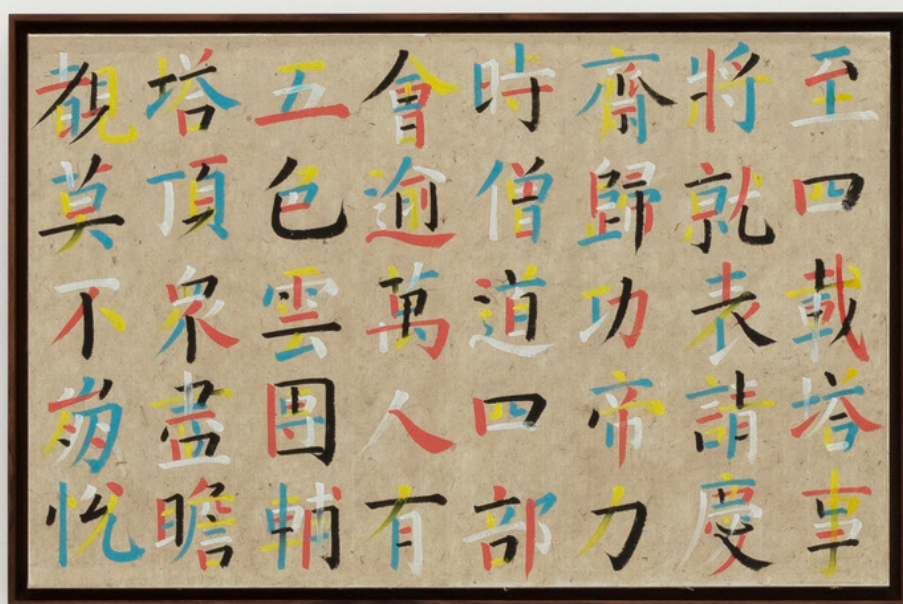 至四載塔事
將就表請慶
齋歸功帝力
時僧道四部
會逾萬人有
五色雲團輔
塔頂衆盡瞻
覩莫不崩悅